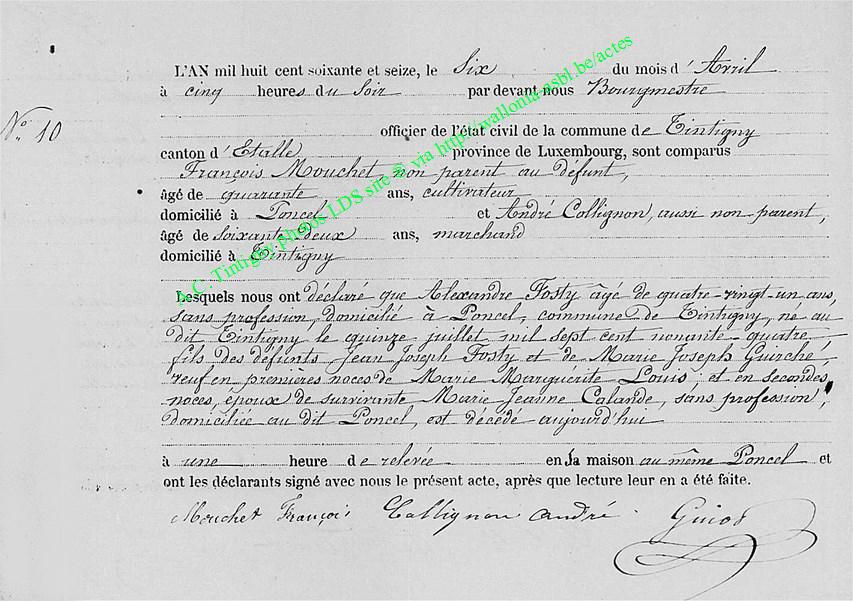 L'AN mil huit cent soixante et seize, le Six du mois d'Avril
à cinq heures du Soir par devant nous Bourgmestre
N° 10
officier de l'état civil de la commune de Tintigny
canton d'Etalle province de Luxembourg, sont comparus
François Mouchet, non parent au Défunt,
âgé de quarante ans, cultivateur
domicilié à Poncel et André Collignon, aussi non parent,
âgé de soixante deux ans, marchand
domicilié à Tintigny
A.C. Tintigny photos LDS site © via http://wallonia-asbl.be/actes
Lesquels nous ont déclaré que Alexandre Fosty âgé de quatre vingt-un ans,
sans profession, domicilié à Poncel, commune de Tintigny, né au
dit Tintigny le quinze juillet mil sept cent nonante-quatre
fils des défunts Jean Joseph Fosty et de Marie Joseph Guirché,
veuf en premières noces de Marie Marguérite Louis, et en secondes
noces, époux de survivante Marie Jeanne Calande, sans profession,
domiciliée au dit Poncel, est décédé aujourd'hui
à une heure de relevée en la maison au même Poncel et
ont les déclarants signé avec nous le présent acte, après que lecture leur en a été faite.
Mouchet François Collignon André. Guiot